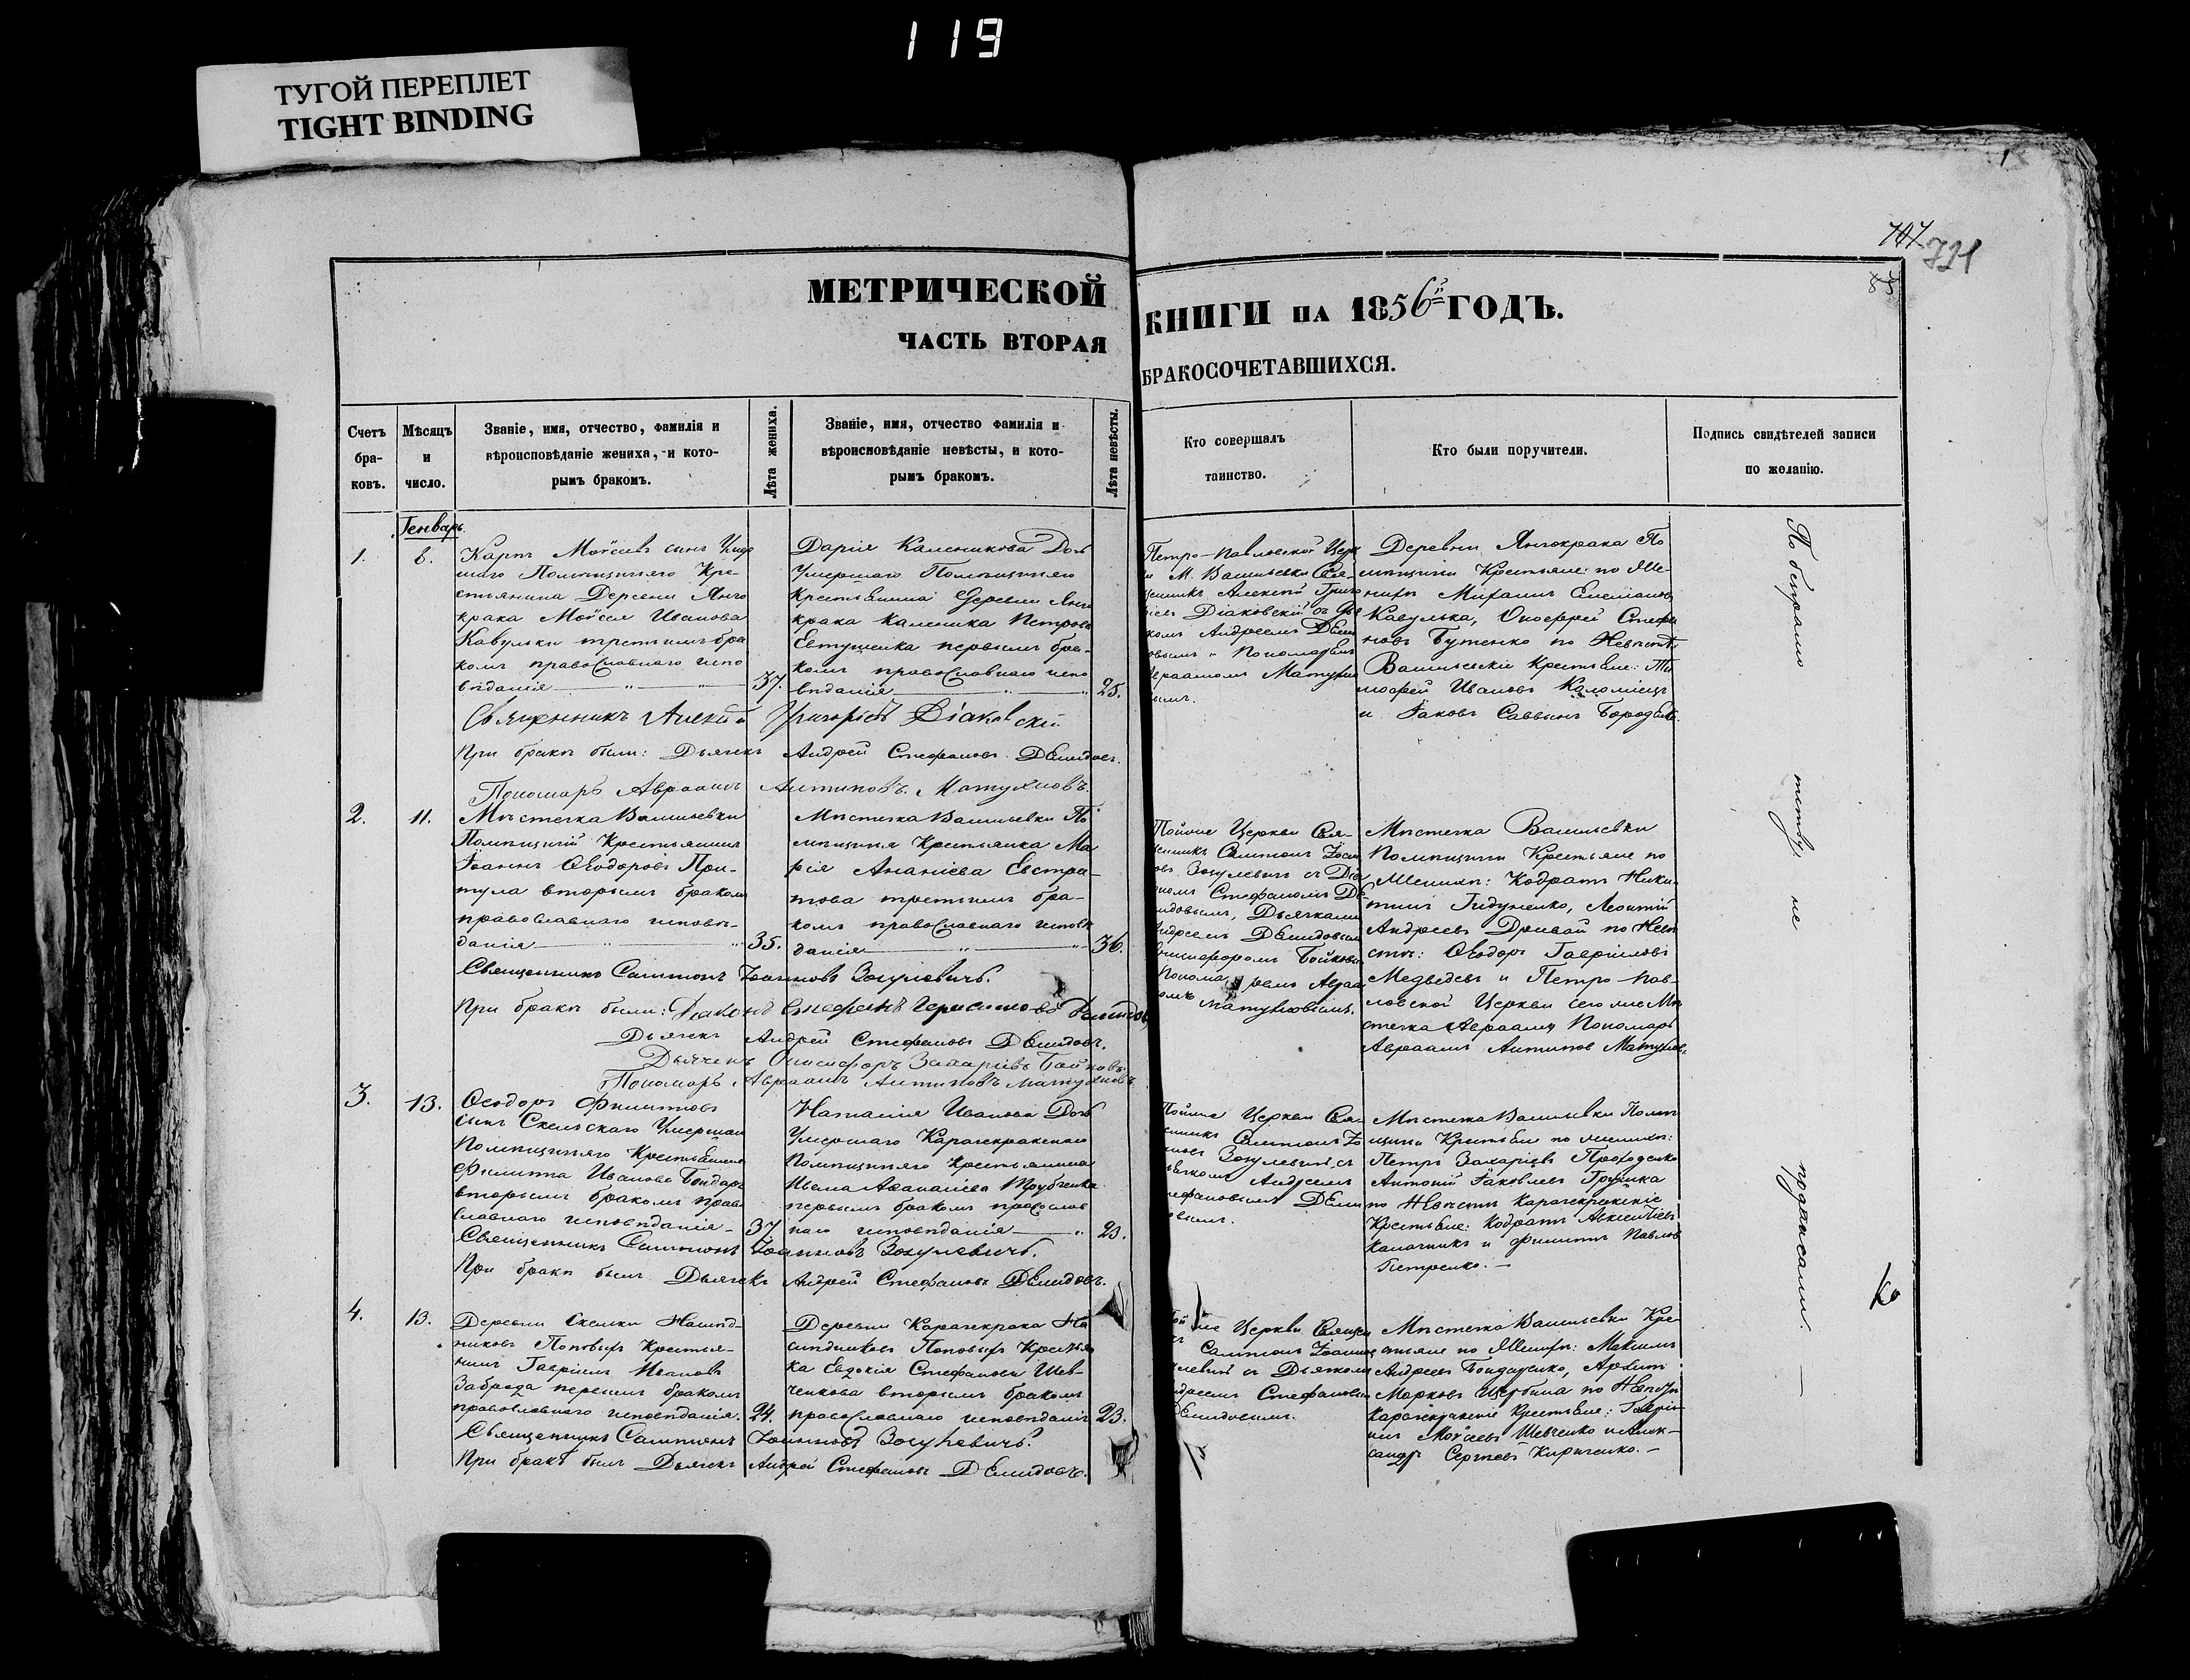 119
ТУГОЙ ПЕРЕПЛЕТ
TIGHT BINDING
707 721
85
МЕТРИЧЕСКОЙ КНИГИ НА 1856й ГОДЪ.
ЧАСТЬ ВТОРАЯ БРАКОСОЧЕТАВШИХСЯ.
Счетъ бра- ковъ.
Мѣсяцъ и число.
Званіе, имя, отчество, фамилія и
вѣроисповѣданіе жениха, и кото-
рымъ бракомъ.
Лѣта жениха.
Званіе, имя, отчество фамилія и
вѣроисповѣданіе невѣсты, и кото-
рымъ бракомъ.
Лѣта невѣсты.
Кто совершалъ
таинство.
Кто были поручители.
Подпись свидѣтелей записи
по желанію.
Генварь
1.
8.
Карпъ Моѵсеевъ сынъ Умер
шаго Помѣщичяго Кре-
стьянина Деревни Янчо
крака Моѵсея Иванова
Кавульки третьимъ бра
комъ православнаго испо
вѣданія
37.
Дарія Каленикова Дочь
Умершаго Помѣщичяго
Крестьянина Деревни Янчо
крака Каленика Петрова
Евтушенка первымъ бра-
комъ православнаго испо
вѣданія
25.
Петро-Павловской Церк
и М. Васильевки Свя-
щенникъ Алексѣй Григо
ріевъ Діаковскій съ Дья
комъ Андреемъ Деми
довымъ и Пономаремъ
Авраамомъ Матухно
вымъ.
Деревни Янчокрака По
мѣщичіи Крестьяне: по Же-
нихѣ Михаилъ Емеліановъ
Кавулька, Онофрей Стефа
новъ Бутенко по Невѣстѣ:
Васильевскіе Крестьяне: Ти
мофей Ивановъ Коломіецъ
и Іаковъ Саввинъ Бородай.
Священникъ Алексѣй Григоріевъ Діаковскій
При бракѣ были: Дьячекъ Андрей Стефановъ Демидовъ.
Пономарь Авраамъ Антиповъ Матухновъ.
2.
11.
Мѣстечка Васильевки
Помѣщичій Крестьянинъ
Іоаннъ Ѳеодоровъ При-
тула вторымъ бракомъ
православнаго исповѣ-
данія
35.
Мѣстечка Васильевки По
мѣщичя Крестьянка Ма
рія Ананіева Евстра-
това третьимъ бра-
комъ православнаго исповѣ
данія
36.
Тойже Церкви Свя-
щенникъ Сампсонъ Іоан
овъ Зосулевичъ съ Діа
комъ Стефаномъ Де
мидовымъ, Дьячками
Андреемъ Демидовымъ
Онисифоромъ Бойковымъ
Пономаремъ Авраа
омъ Матухновымъ.
Мѣстечка Васильевки
Помѣщичіи Крестьяне по
Женихѣ: Кодратъ Ники-
тинъ Гидуненко, Леонтій
Андреевъ Дривай по Невѣ
стѣ: Ѳеодоръ Гавріиловъ
Медведевъ и Петро-Пав-
ловской Церкви сего же Мѣ
стечка Авраамъ Пономарь
Авраамъ Антиповъ Матухновъ.
Священникъ Сампсонъ Іоанновъ Зосулевичъ.
При бракѣ были: Діаконъ Стефанъ Герасимовъ Демидовъ
Дьячекъ Андрей Стефановъ Демидовъ.
Дьячекъ Онисифоръ Захаріевъ Бойковъ.
Пономарь Авраамъ Антиповъ Матухновъ
3.
13.
Ѳеодоръ Филиповъ
сынъ Скельскаго Умершаго
Помѣщичяго Крестьянина
Филиппа Иванова Бондаря
вторымъ бракомъ право
славнаго исповѣданія
37
Наталія Иванова Дочь
Умершаго Карачекракскаго
Помѣщичяго Крестьянина
Ивана Аѳанасіева Трубченка
первымъ бракомъ православ
наго исповѣданія
23.
Тойже Церкви Свя-
щенникъ Сампсонъ Іо
анновъ Зосулевичъ съ
Дьячкомъ Андреемъ
Стефановымъ Деми
довымъ.
Мѣстечка Васильевки Помѣ
щичіи Крестьяне по женихѣ:
Петръ Захаріевъ Проходенко
Антоній Іаковлевъ Грушка
по Невѣстѣ Карачекракскіе
Крестьяне: Кодратъ Авксентіевъ
Калачникъ и Филиппъ Павловъ
Петренко.
Священникъ Сампсонъ Іоанновъ Зосулевичъ.
При бракѣ былъ Дьячекъ Андрей Стефановъ Демидовъ.
4.
13.
Деревни Скельки Наслѣд-
никовъ Поповыхъ Крестья-
нинъ Гавріилъ Ивановъ
Заброда первымъ бракомъ
православнаго исповѣданія.
24.
Деревни Карачекрака На
слѣдниковъ Поповыхъ Крестьян
ка Евдокія Стефанова Шев-
ченкова вторымъ бракомъ
православнаго исповѣданія
23.
Тойже Церкви Священ
Сампсонъ Іоанновъ
улевичъ съ Дьячкомъ
Андреемъ Стефановымъ
Демидовымъ.
Мѣстечка Васильевки Кре
стьяне по Женихѣ: Максимъ
Андреевъ Бондаренко, Архипъ
Марковъ Щербина по Невѣстѣ
Карачекракскіе Крестьяне: Гаврі
илъ Моѵсеевъ Шевченко и Алек-
сандръ Сергѣевъ Кириченко.
Священникъ Сампсонъ Іоанновъ Зосулевичъ.
При бракѣ былъ Дьячекъ Андрей Стефановъ Демидовъ.
По безграмотству, не подписали.